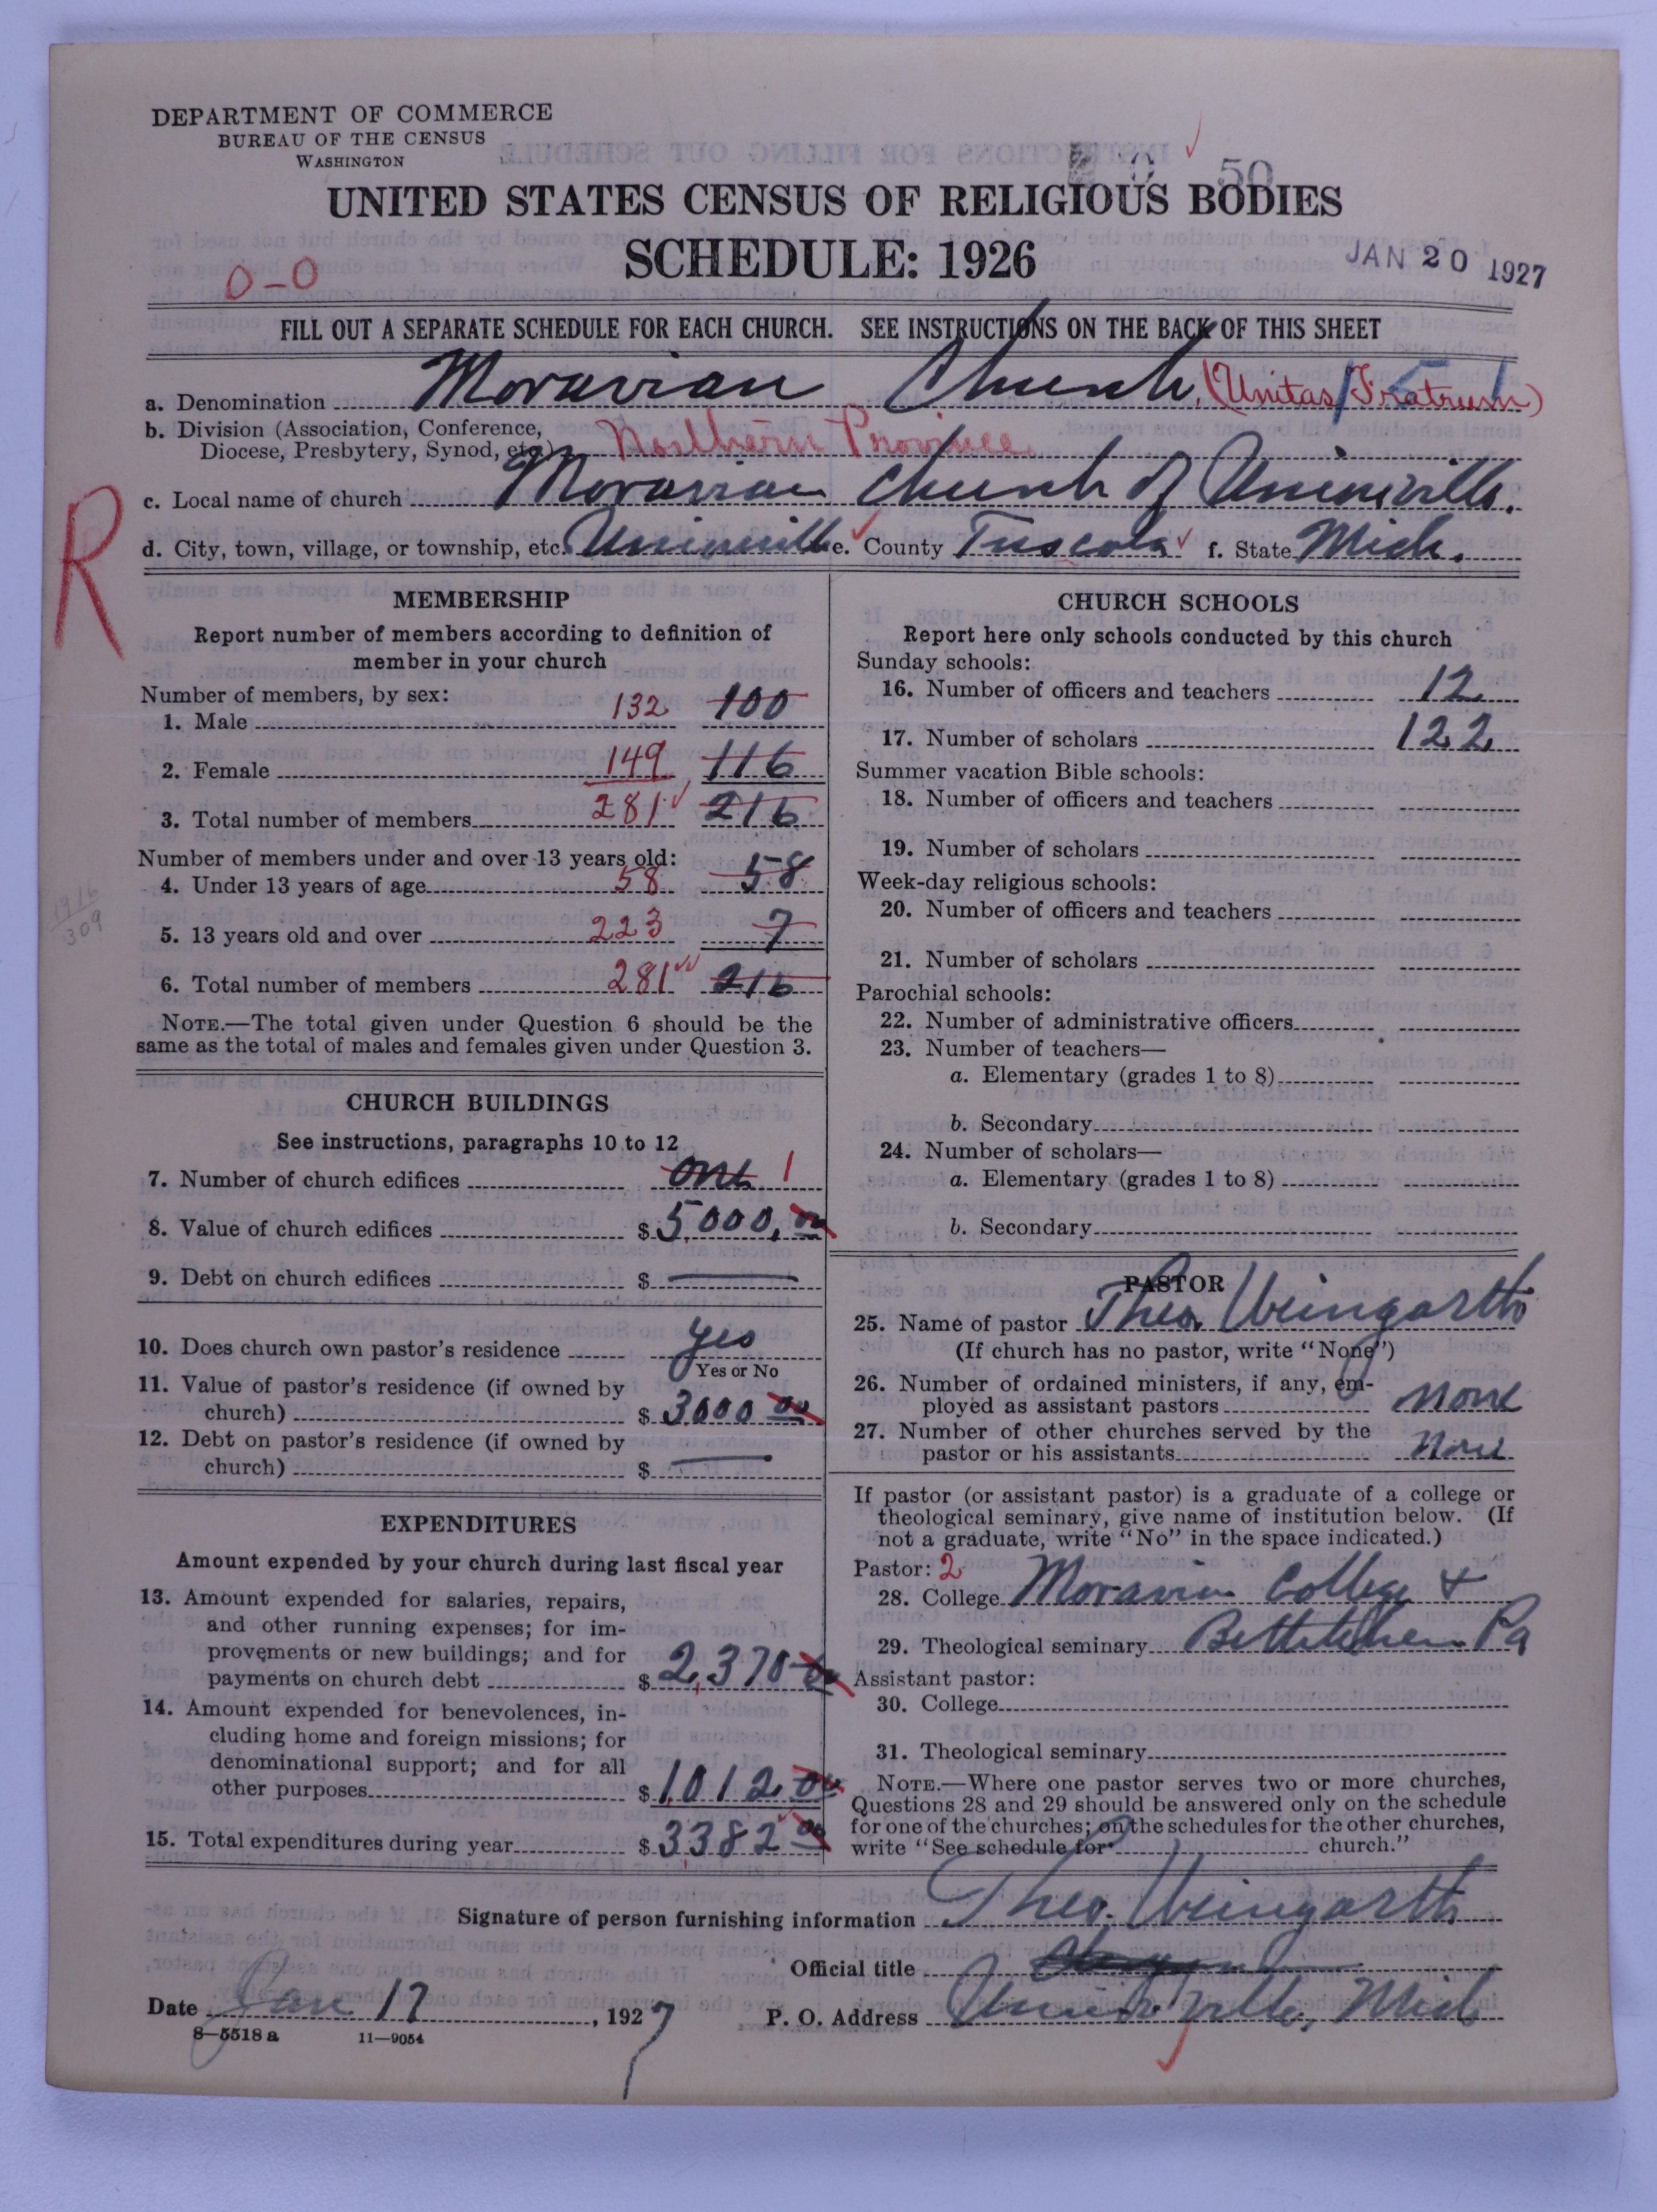 DEPARTMENT OF COMMERCE
BUREAU OF THE CENSUS
WASHINGTON
50
UNITED STATES CENSUS OF RELIGIOUS BODIES
SCHEDULE: 1926
JAN 20 1927
0-0
FILL OUT A SEPARATE SCHEDULE FOR EACH CHURCH. SEE INSTRUCTIONS ON THE BACK OF THIS SHEET
a. Denomination Moravian Church, (Unitas Fratrum)
b. Division (Association, Conference, Diocese, Presbytery, Synod, etc.) Northern Province
c. Local name of church Moravian Church of Unionville.
d. City, town, village, or township, etc. Unionville e. County Tuscola f. State Mich.
R
MEMBERSHIP
Report number of members according to definition of
member in your church
Number of members, by sex:
1. Male 132 100
2. Female 149 116
3. Total number of members 281 216
Number of members under and over 13 years old:
4. Under 13 years of age 58 58
5. 13 years old and over 223 7
6. Total number of members 281 216
1916
309
NOTE.—The total given under Question 6 should be the
same as the total of males and females given under Question 3.
CHURCH BUILDINGS
See instructions, paragraphs 10 to 12
7. Number of church edifices one 1
8. Value of church edifices $ 5000.00
9. Debt on church edifices $ —
10. Does church own pastor's residence yes
Yes or No
11. Value of pastor's residence (if owned by
church) $ 3000 00
12. Debt on pastor's residence (if owned by
church) $ —
EXPENDITURES
Amount expended by your church during last fiscal year
13. Amount expended for salaries, repairs,
and other running expenses; for im-
provements or new buildings; and for
payments on church debt $ 2,370
14. Amount expended for benevolences, in-
cluding home and foreign missions; for
denominational support; and for all
other purposes $ 1,012 00
15. Total expenditures during year $ 3382 00
CHURCH SCHOOLS
Report here only schools conducted by this church
Sunday schools:
16. Number of officers and teachers 12
17. Number of scholars 122
Summer vacation Bible schools:
18. Number of officers and teachers
19. Number of scholars
Week-day religious schools:
20. Number of officers and teachers
21. Number of scholars
Parochial schools:
22. Number of administrative officers
23. Number of teachers—
a. Elementary (grades 1 to 8)
b. Secondary
24. Number of scholars—
a. Elementary (grades 1 to 8)
b. Secondary
PASTOR
25. Name of pastor Theo. Weingarth
(If church has no pastor, write "None")
26. Number of ordained ministers, if any, em-
ployed as assistant pastors none
27. Number of other churches served by the
pastor or his assistants none
If pastor (or assistant pastor) is a graduate of a college or
theological seminary, give name of institution below. (If
not a graduate, write "No" in the space indicated.)
Pastor: 2
28. College Moravian College +
29. Theological seminary Bethlehem Pa
Assistant pastor:
30. College
31. Theological seminary
NOTE.—Where one pastor serves two or more churches,
Questions 28 and 29 should be answered only on the schedule
for one of the churches; on the schedules for the other churches,
write "See schedule for church."
Signature of person furnishing information Theo. Weingarth
Official title
Date Jan 17, 1927 P. O. Address Unionville, Mich
8—5518 a 11—9054